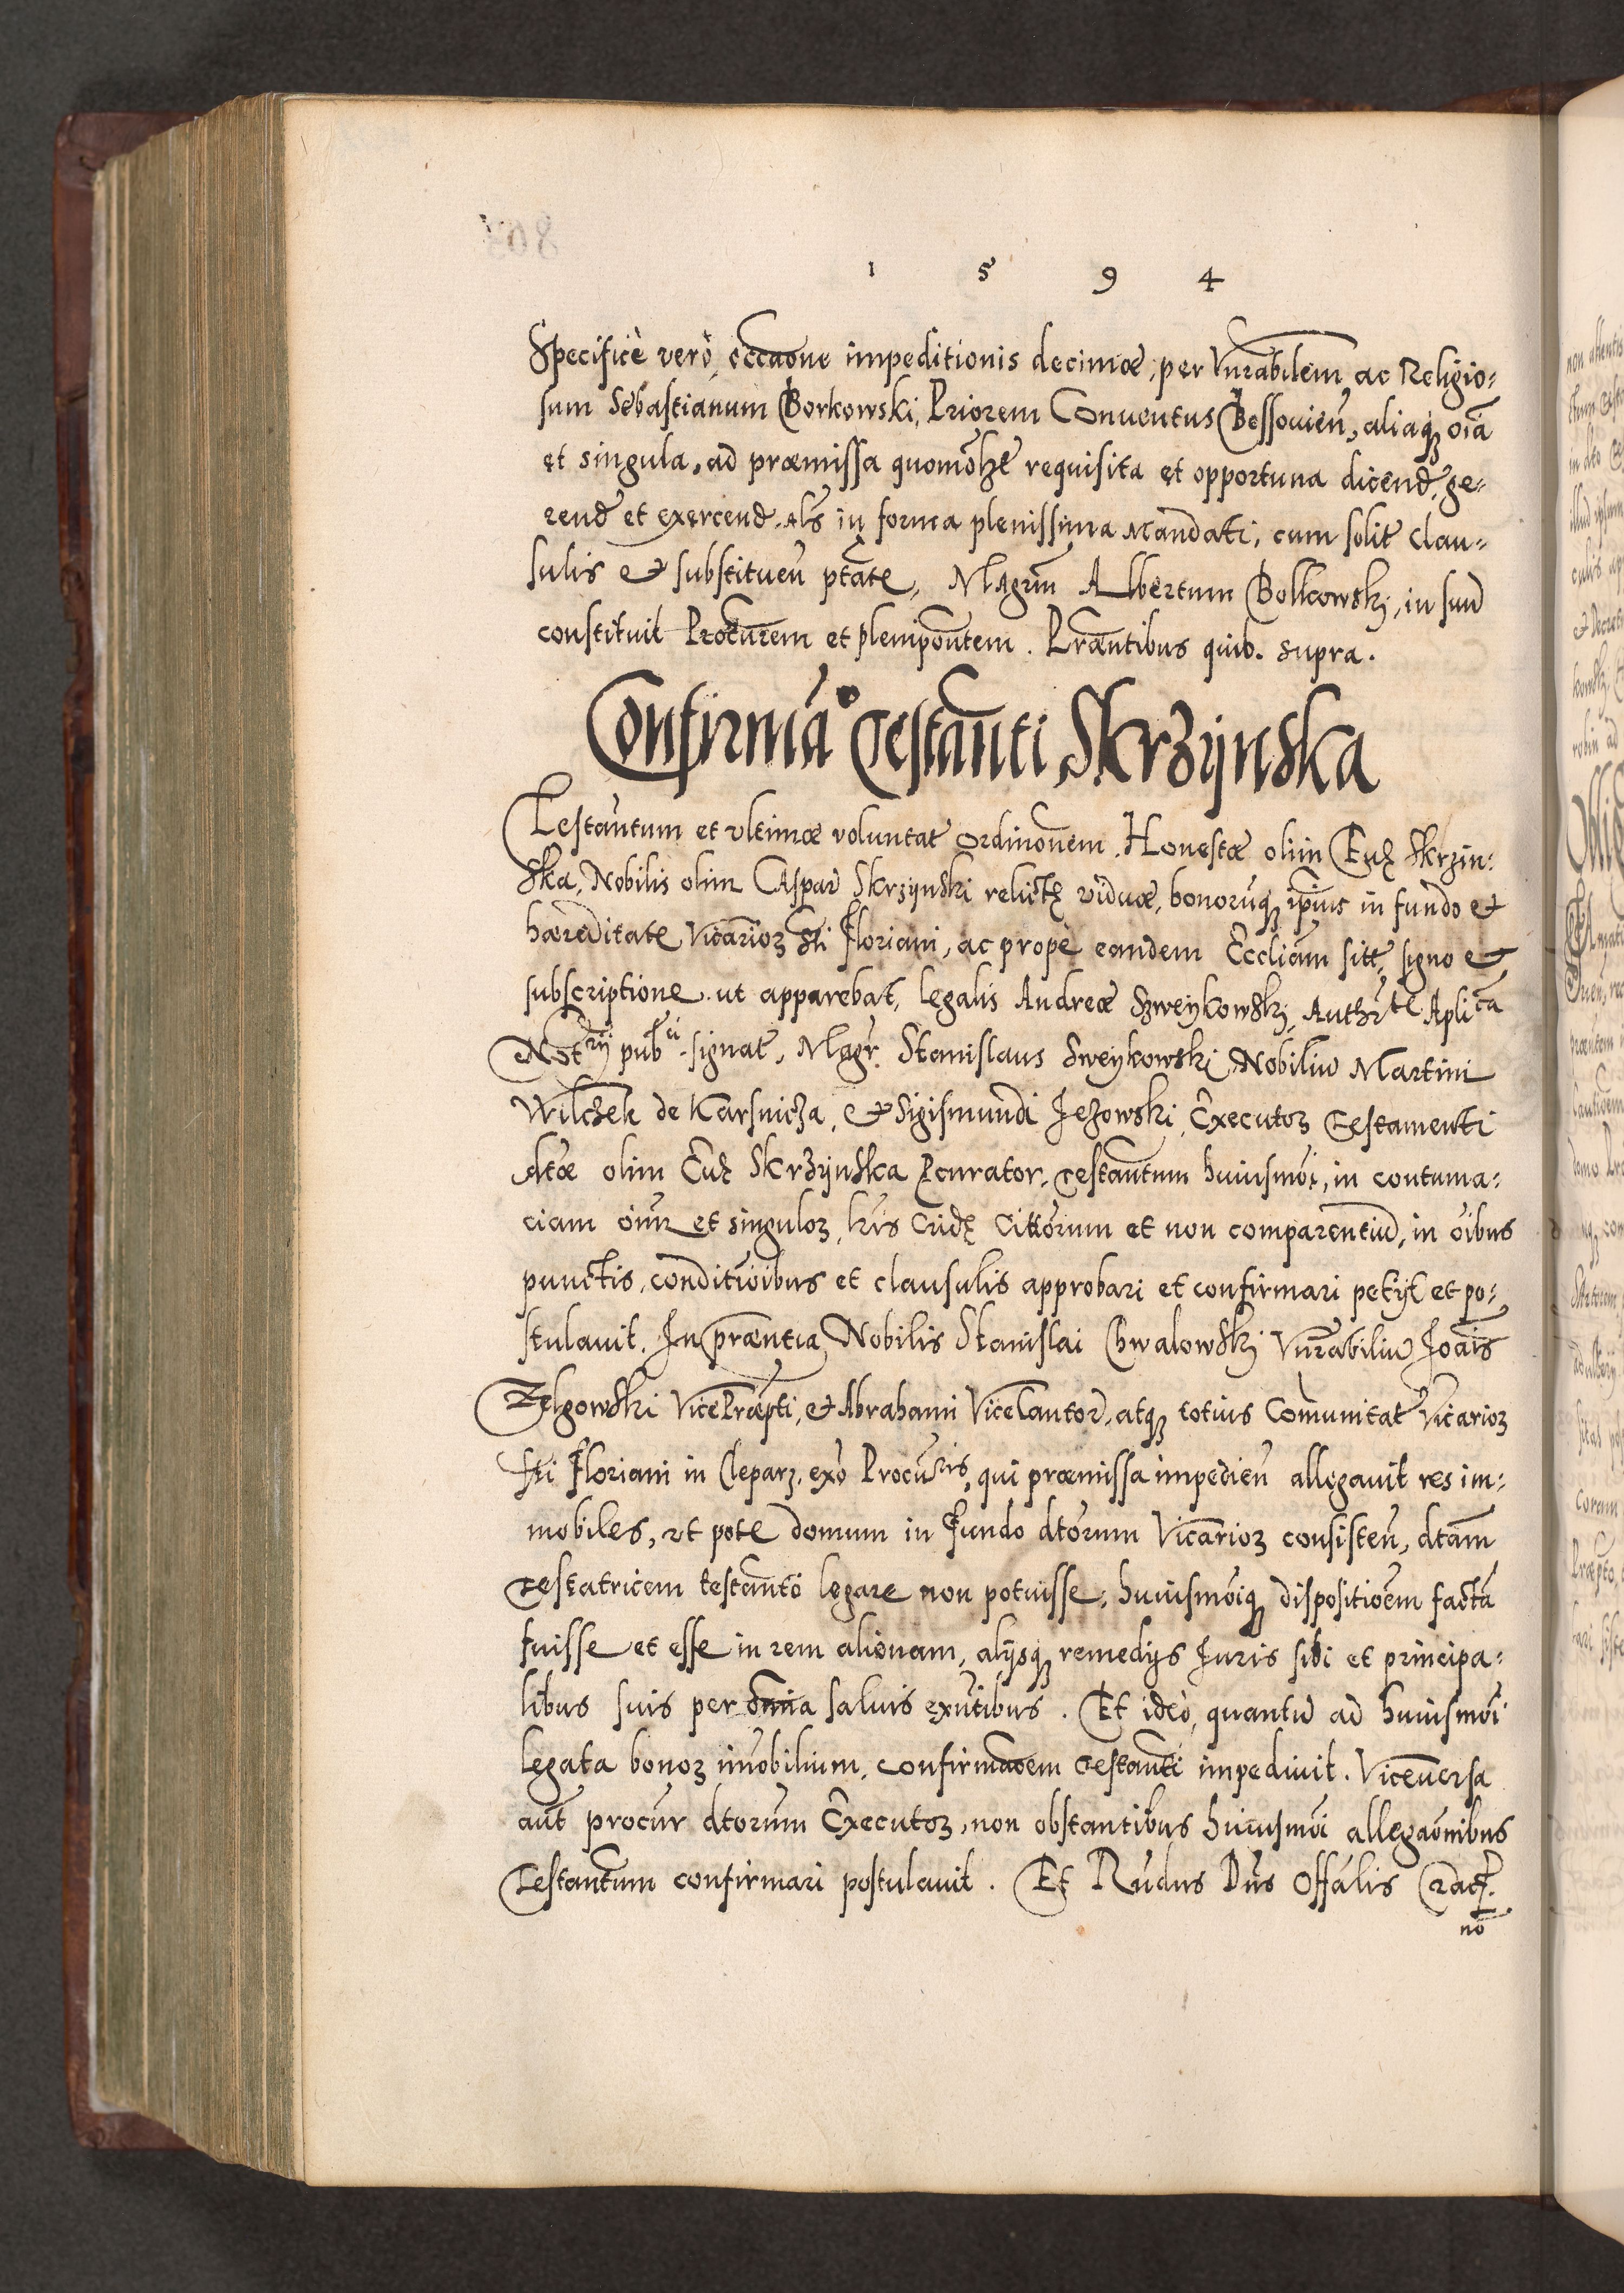 1 5 9 4
Specificè verò, occaōne impeditionis decimæ, per Vnrabilem ac Religio:
sum Sebastianum Borkowski, Priorem Conuentus Bessouien̄, aliaqȝ oīa
et singula, ad præmissa quomōlzt requisita et opportuna dicend, ge:
rend et exercend. Als in forma plenissima Mandati, cum solit Clau:
sulis et substituen̄ ptāte, Magrm̄ Albertum Bolkowski, in suū
constituit Procurem et plenipōntem. Præntibus quib. supra.
Confirmāo Testānti Skrzÿnska
Testāntum et vltimæ voluntat ordinōnem. Honestæ olim Euę Skrzin:
ska, Nobilis olim Caspar Skrzynski relictę viduæ, bonorūqȝ ip̄ius in fundo et
hæreditate Vicārioꝝ Sti Floriani, ac propè eandem Eccliam sitt, signo et
subscriptione, ut apparebat, legalis Andreæ Szweykowski, Authrte Aplica
Notrij pubci. signat, Magr̄. Stanislaus Sweykowski Nobiliū Martini
Wilczek de Karsnicza, et Sigismundi Jezowski, Executoꝝ Testamenti
dtæ olim Euę Skrzÿnska Pcurator, testāntum huiusmōi, in contuma:
ciam oīum et singuloꝝ, lr̄is Cridę Cittōrum et non comparentiū, in oībus
punctis, conditiōibus et clausulis approbari et confirmari petijt et po:
stulauit. In præntia Nobilis Stanislai Chwalowski Vnrabiliū Joānis
Zelgowski Vicepræpti, et Abrahami Vicecantor, atqȝ totius Comunitat Vicarioꝝ
Sti Floriani in Cleparȝ, exō Procuris, qui præmissa impedien̄ allegauit res im:
mobiles, ut pote domum in fundo dtorum Vicārioꝝ consisten̄, dtam
testatricem testānto legare non potuisse, huiusmōiqȝ dispositiōem factā
fuisse et esse in rem alienam, alijsqȝ remedijs Juris sibi et principa:
libus suis per omnia saluis exntibus. Et ideò, quantū ad huiusmōi
legata bonoꝝ im̄obilium, confirmaōem testānti impediuit. Viceuersa
aut̄ procur dtorum Executoꝝ, non obstantibus huiusmōi allegaōnibus
Testāntum confirmari postulauit. Et Rndus Dn̄s Offālis
no